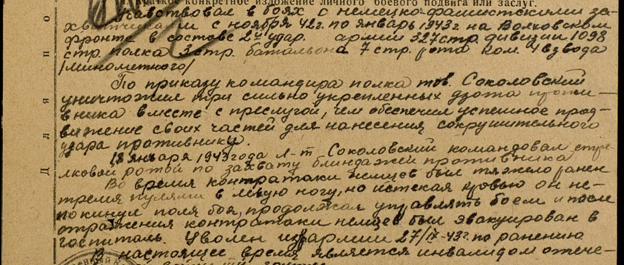 краткое конкретное изложение личного боевого подвига или заслуг.
Участвовал в боях с немецко-фашистскими за-
хватчиками с ноября 42г. по январь 1943г. на Волховском
фронте в составе 2й удар. армии 327 стр. дивизии 1098
стр. полка 3 стр. батальона 7 стр. рота ком. взвода
/минометного/
По приказу командира полка тов. Соколовский
уничтожил три сильно укрепленных дзота проти-
вника вместе с прислугой, чем обеспечил успешное прод-
вижение своих частей для нанесения сокрушительного
удара противнику.
18 января 1943 года л-т Соколовский командовал стре-
лковой ротой по захвату блиндажей противника
Во время контратаки немцев был тяжело ранен
тремя пулями в левую ногу, но истекая кровью он не
покинул поля боя, продолжал управлять боем и после
отражения контратаки немцев был эвакуирован в
госпиталь. Уволен из армии 27/IV-43г. по ранению
В настоящее время является инвалидом отече-